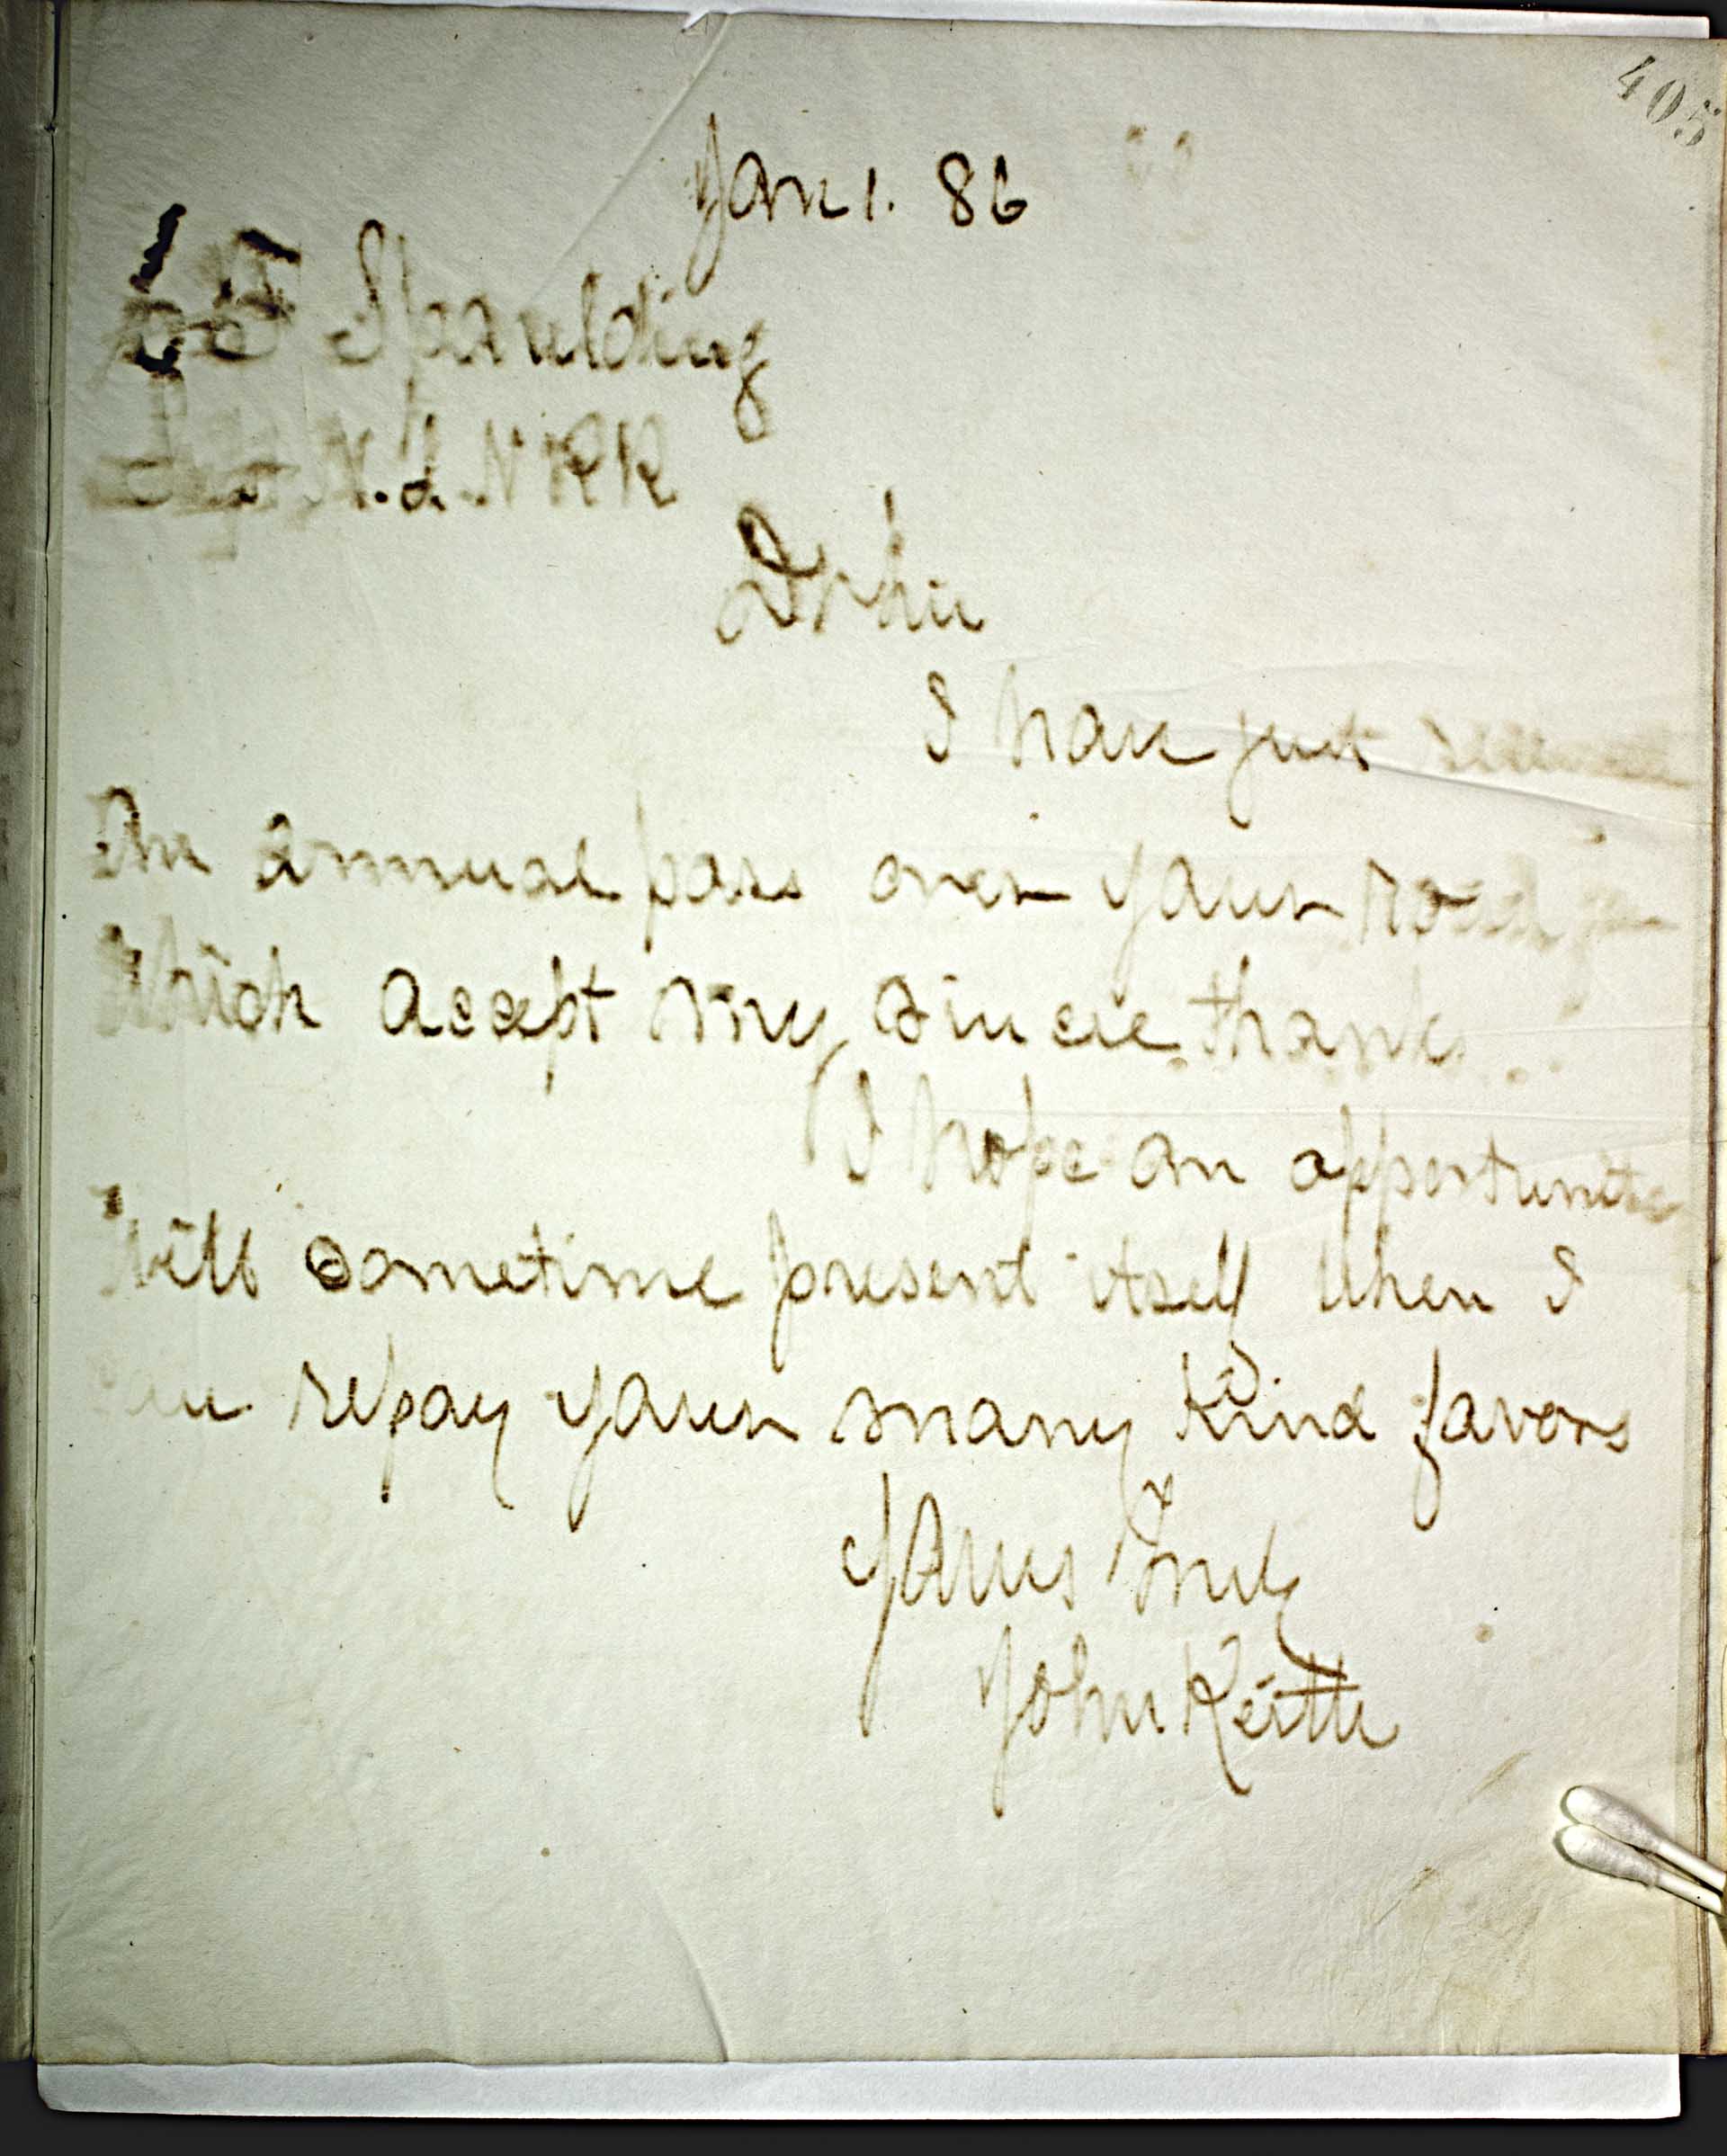 405
Jan 1. 86
Spaulding
Supt N. & N RR
D Sir
I have just received
An Annual pass over your road for
Which Accept my sincere thanks
I hope an opportunity
Will sometime present itself when I
can repay your many kind favors
Yours Truly
John Keith